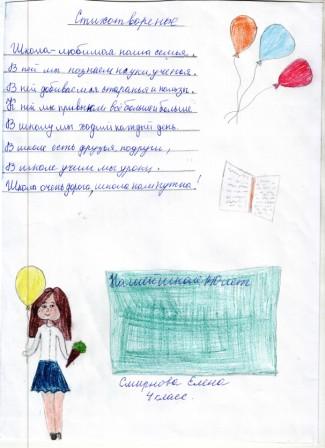 Стихотворение
Школа-любимая наша семья.
В ней мы познаем науки, ученья.
В ней добиваемся старанья и
К ней мы привыкли всё больше и больше
В школу мы ходим каждый день.
В школе есть друзья, подруги,
В школе учим мы уроки.
Школа очень дорога, школа нам нужна!
Нашей школе 40 лет
Смирнова Елена
4 класс.